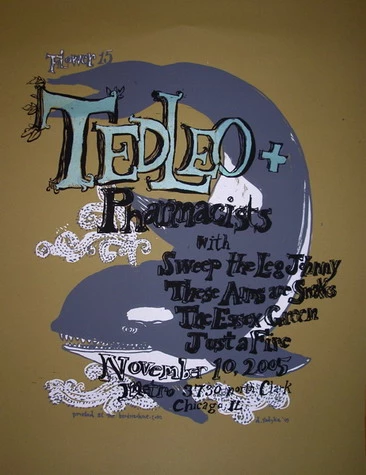 TED LEO +
Pharmacists
with
Sweep the Leg Johnny
These Arms are Snakes
The Essex Green
Just a Fire
November 10, 2005
Metro 3730 north Clark
Chicago, IL
printed at the